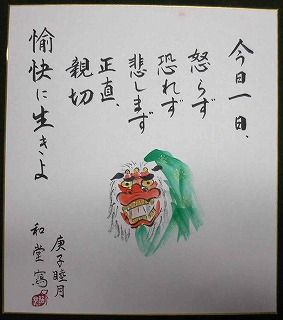 今日一日、
怒らず
恐れず
悲しまず
正直、
親切
愉快に生きよ
庚子睦月
和堂寫